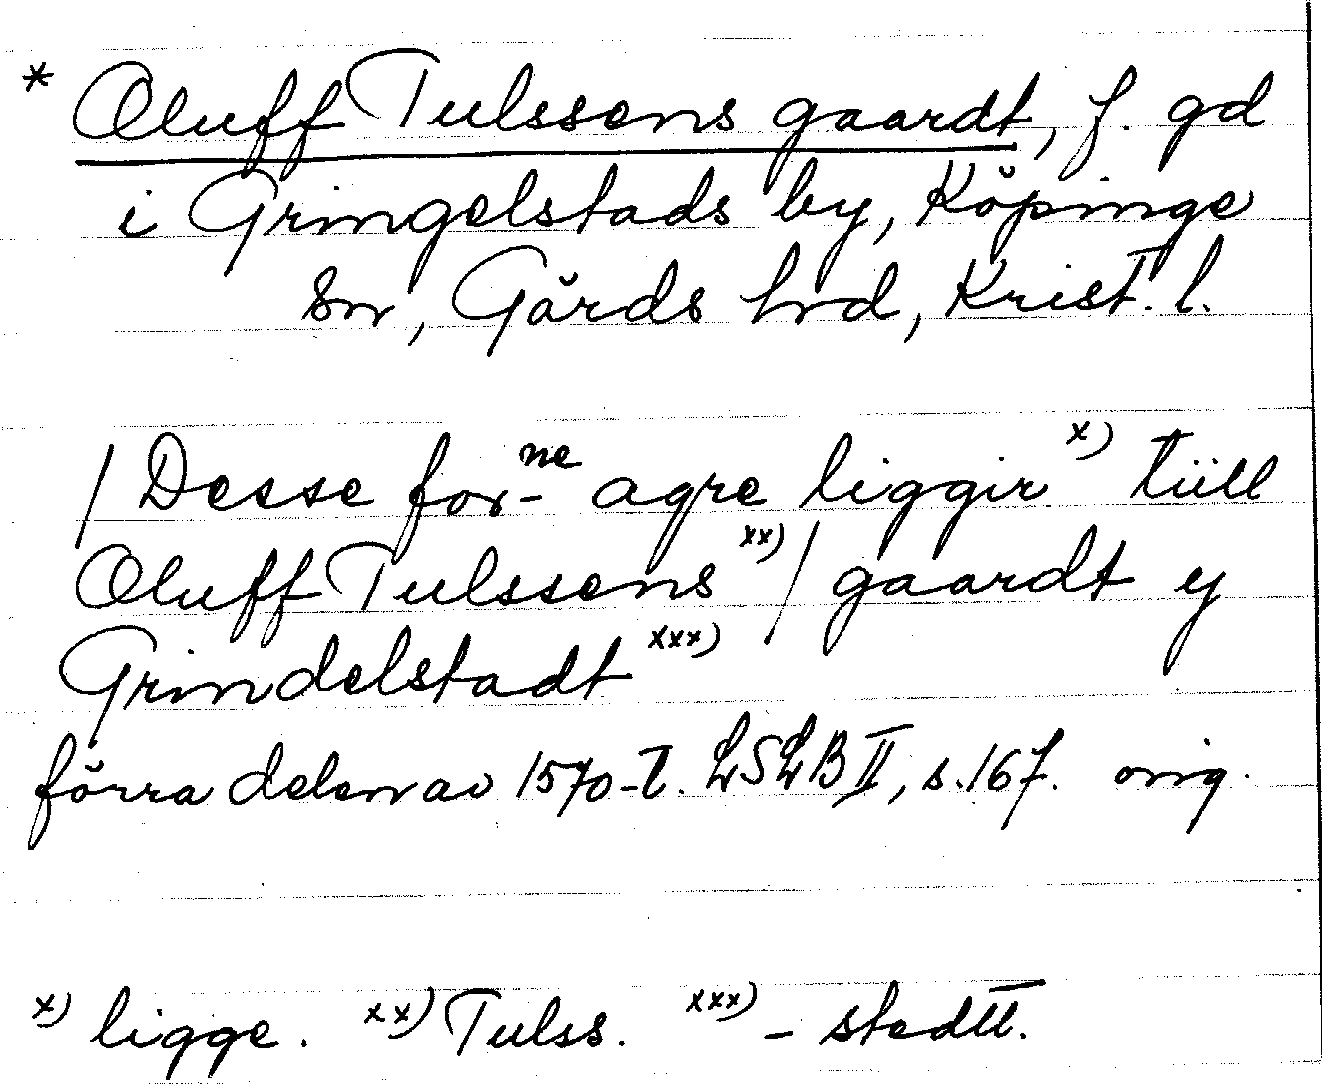 * Oluff Tulssens gaardt, f. gd
i Gringelstads by, Köpinge
sn, Gärds hrd, Krist. l.
/ Desse for-ne agre liggir x) tiill
Oluff Tulssens xx) / gaardt y
Grindelstadt xxx)
förra delen av 1570-t. LSLB II, s. 167. orig.
x) ligge. xx) Tulss. xxx) -stedtt.